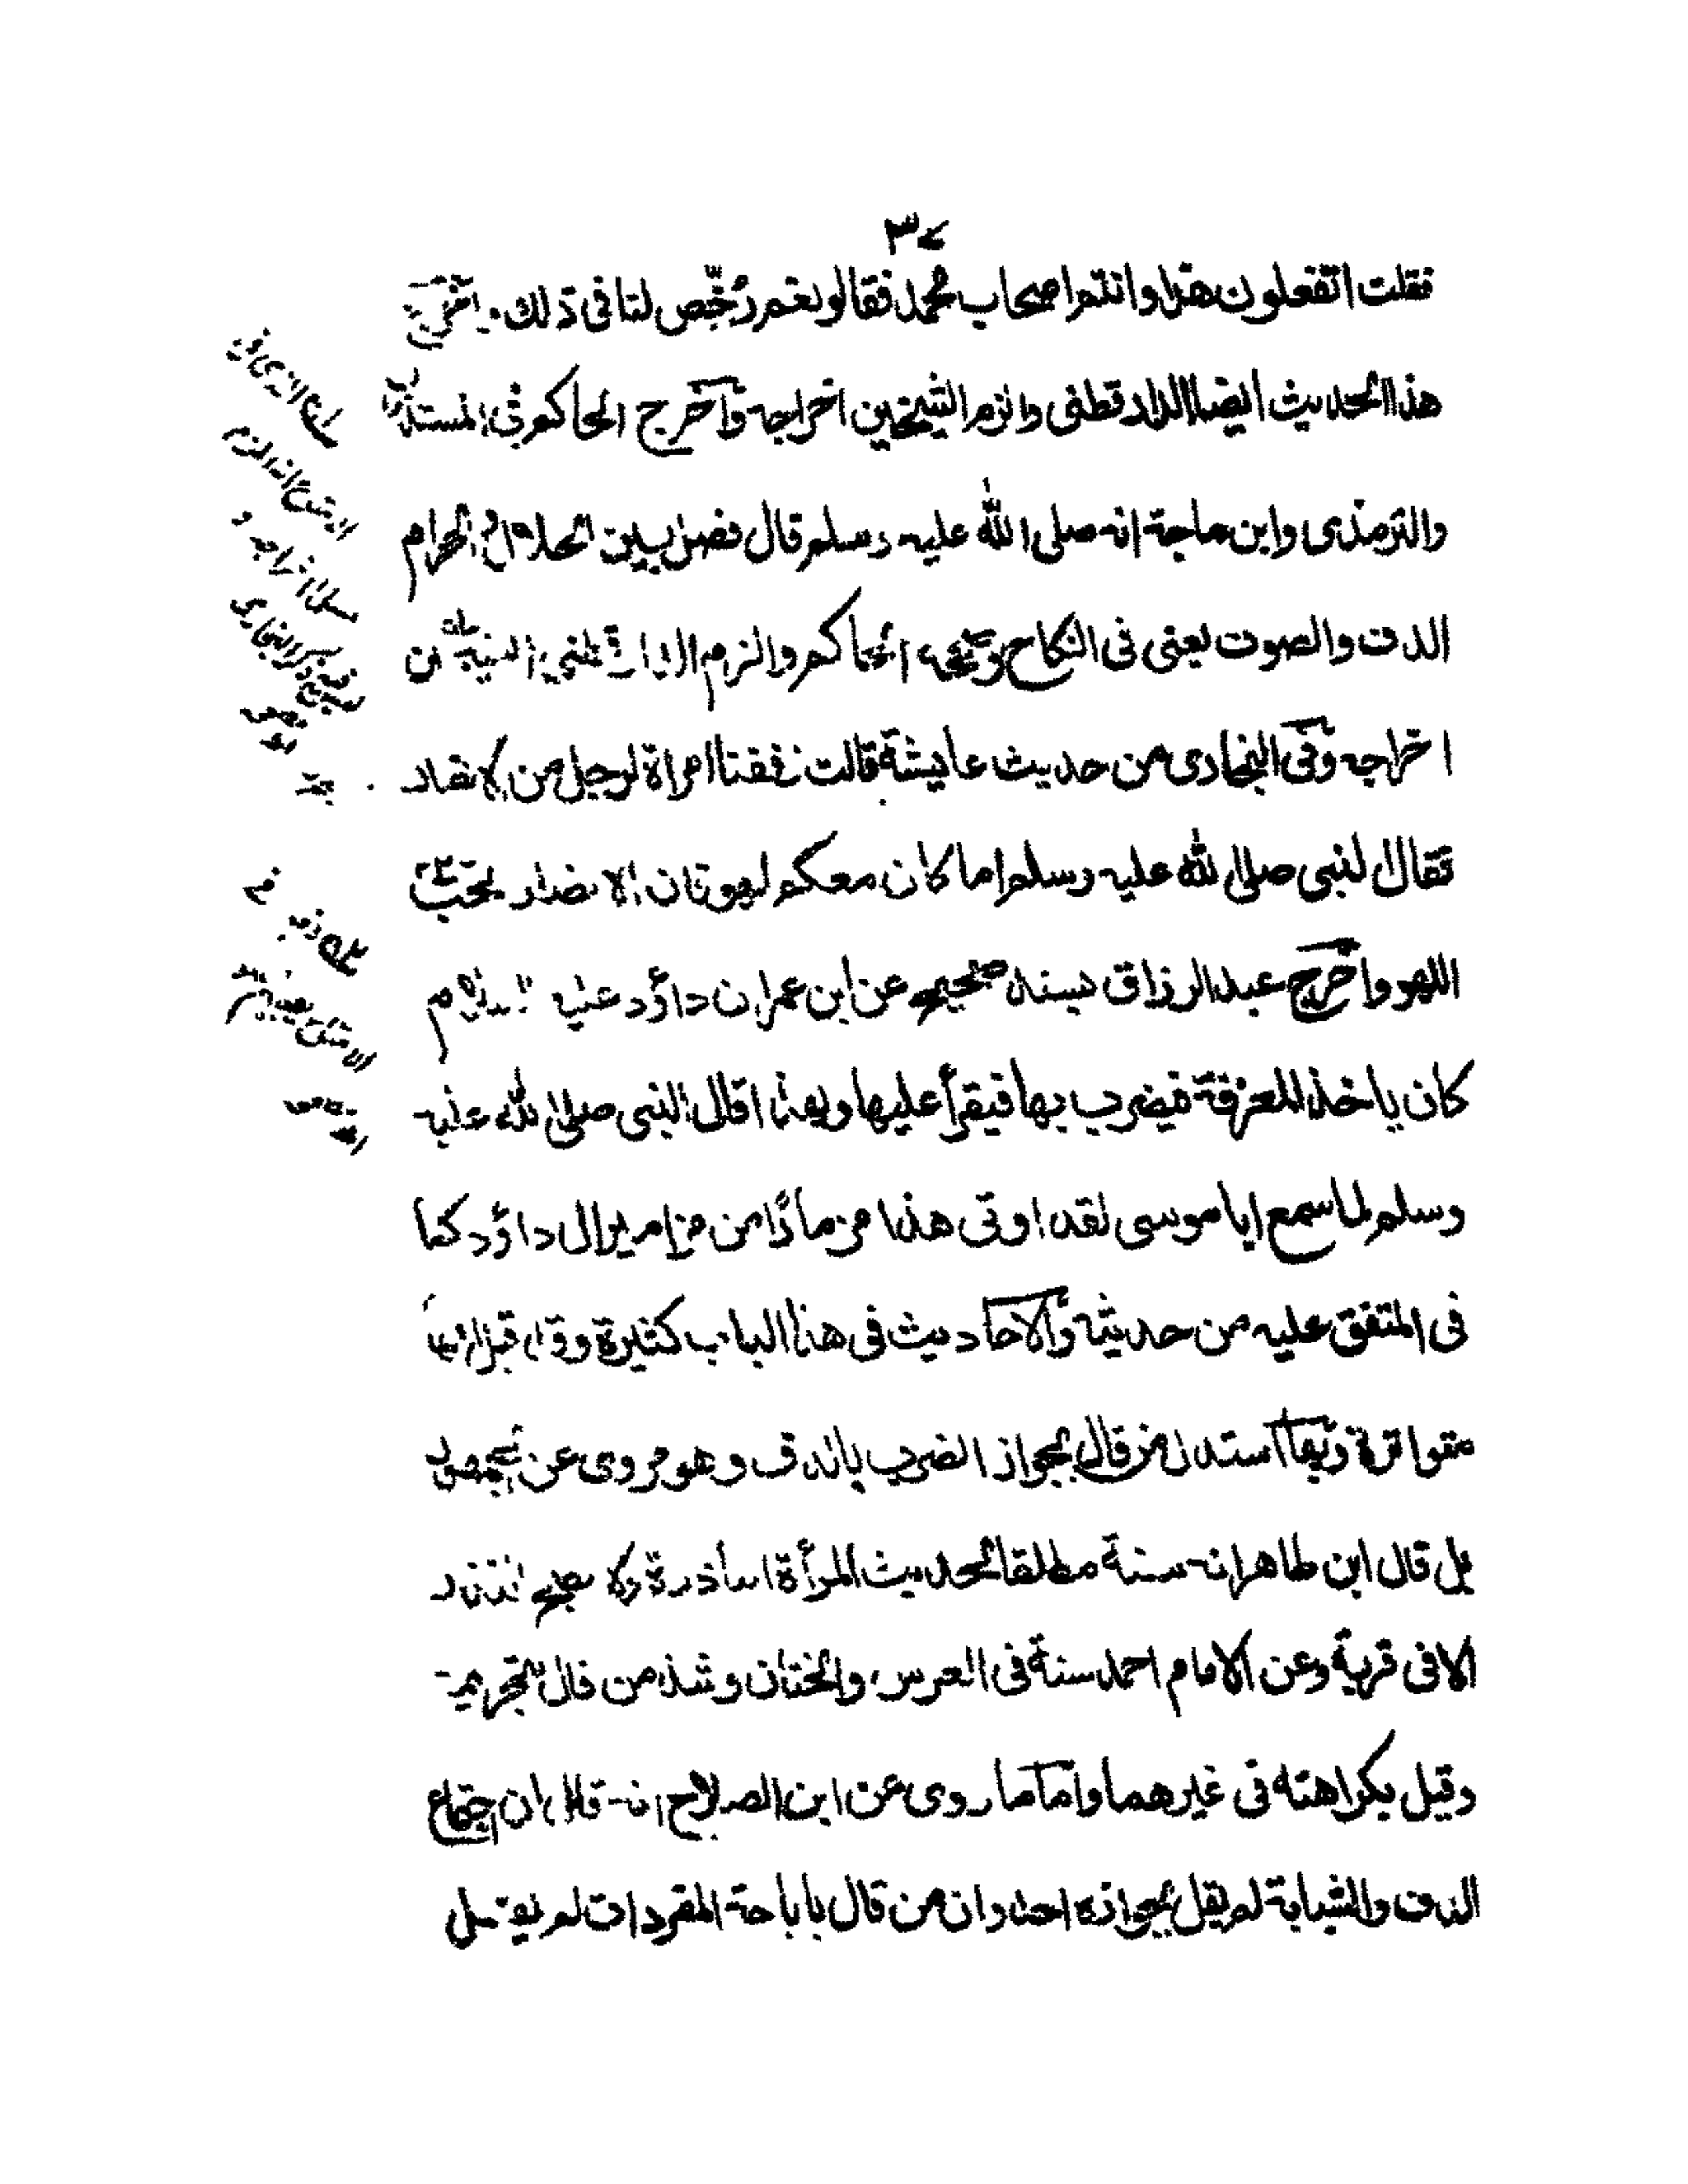 ٣٧
فقلت اتفعلون هذا وانتم اصحاب محمد فقالو نعم رُخّص لنا فى ذلك واخرج
هذا الحديث ايضا الدارقطنى والزم الشيخين اخراجه وآخرج الحاكم فى المستدرك
والترمذى وابن ماجة انه صلى الله عليه وسلم قال فصل بين الحلال والحرام
الدف والصوت يعنى فى النكاح وصححه الحاكم والزم الدارقطنى الشيخين
اخراجه وفى البخارى من حديث عايشة قالت زففنا امراة لرجل من الانصار
فقال لنبى صلى الله عليه وسلم اما كان معكم لهو فان الانصار يحب
اللهو واخرج عبد الرزاق بسند صحيح عن ابن عمر ان داؤد عليه السلام
كان ياخذ المعزفة فيضرب بها فيقرأ عليها ولهذا قال النبى صلى الله عليه
وسلم لما سمع ابا موسى لقد اوتى هذا مزمارًا من مزامير ال داؤد كما
فى المتفق عليه من حديثه والاحاديث فى هذا الباب كثيرة وقد قيل انها
متواترة وبها استدل من قال بجواز الضرب بالدف وهو مروى عن الجمهور
بل قال ابن طاهر انه سنة مطلقا لحديث المرأة الناذرة ولا يصح النذر
الا فى قربة وعن الامام احمد سنة فى العرس والختان وشذ من قال بتحريمه
وقيل بكراهته فى غيرهما واما ما روى عن ابن الصلاح انه قال ان اجتماع
الدف والشبابة لم يقل بجوازه احد وان من قال باباحة المفردات لم يقل